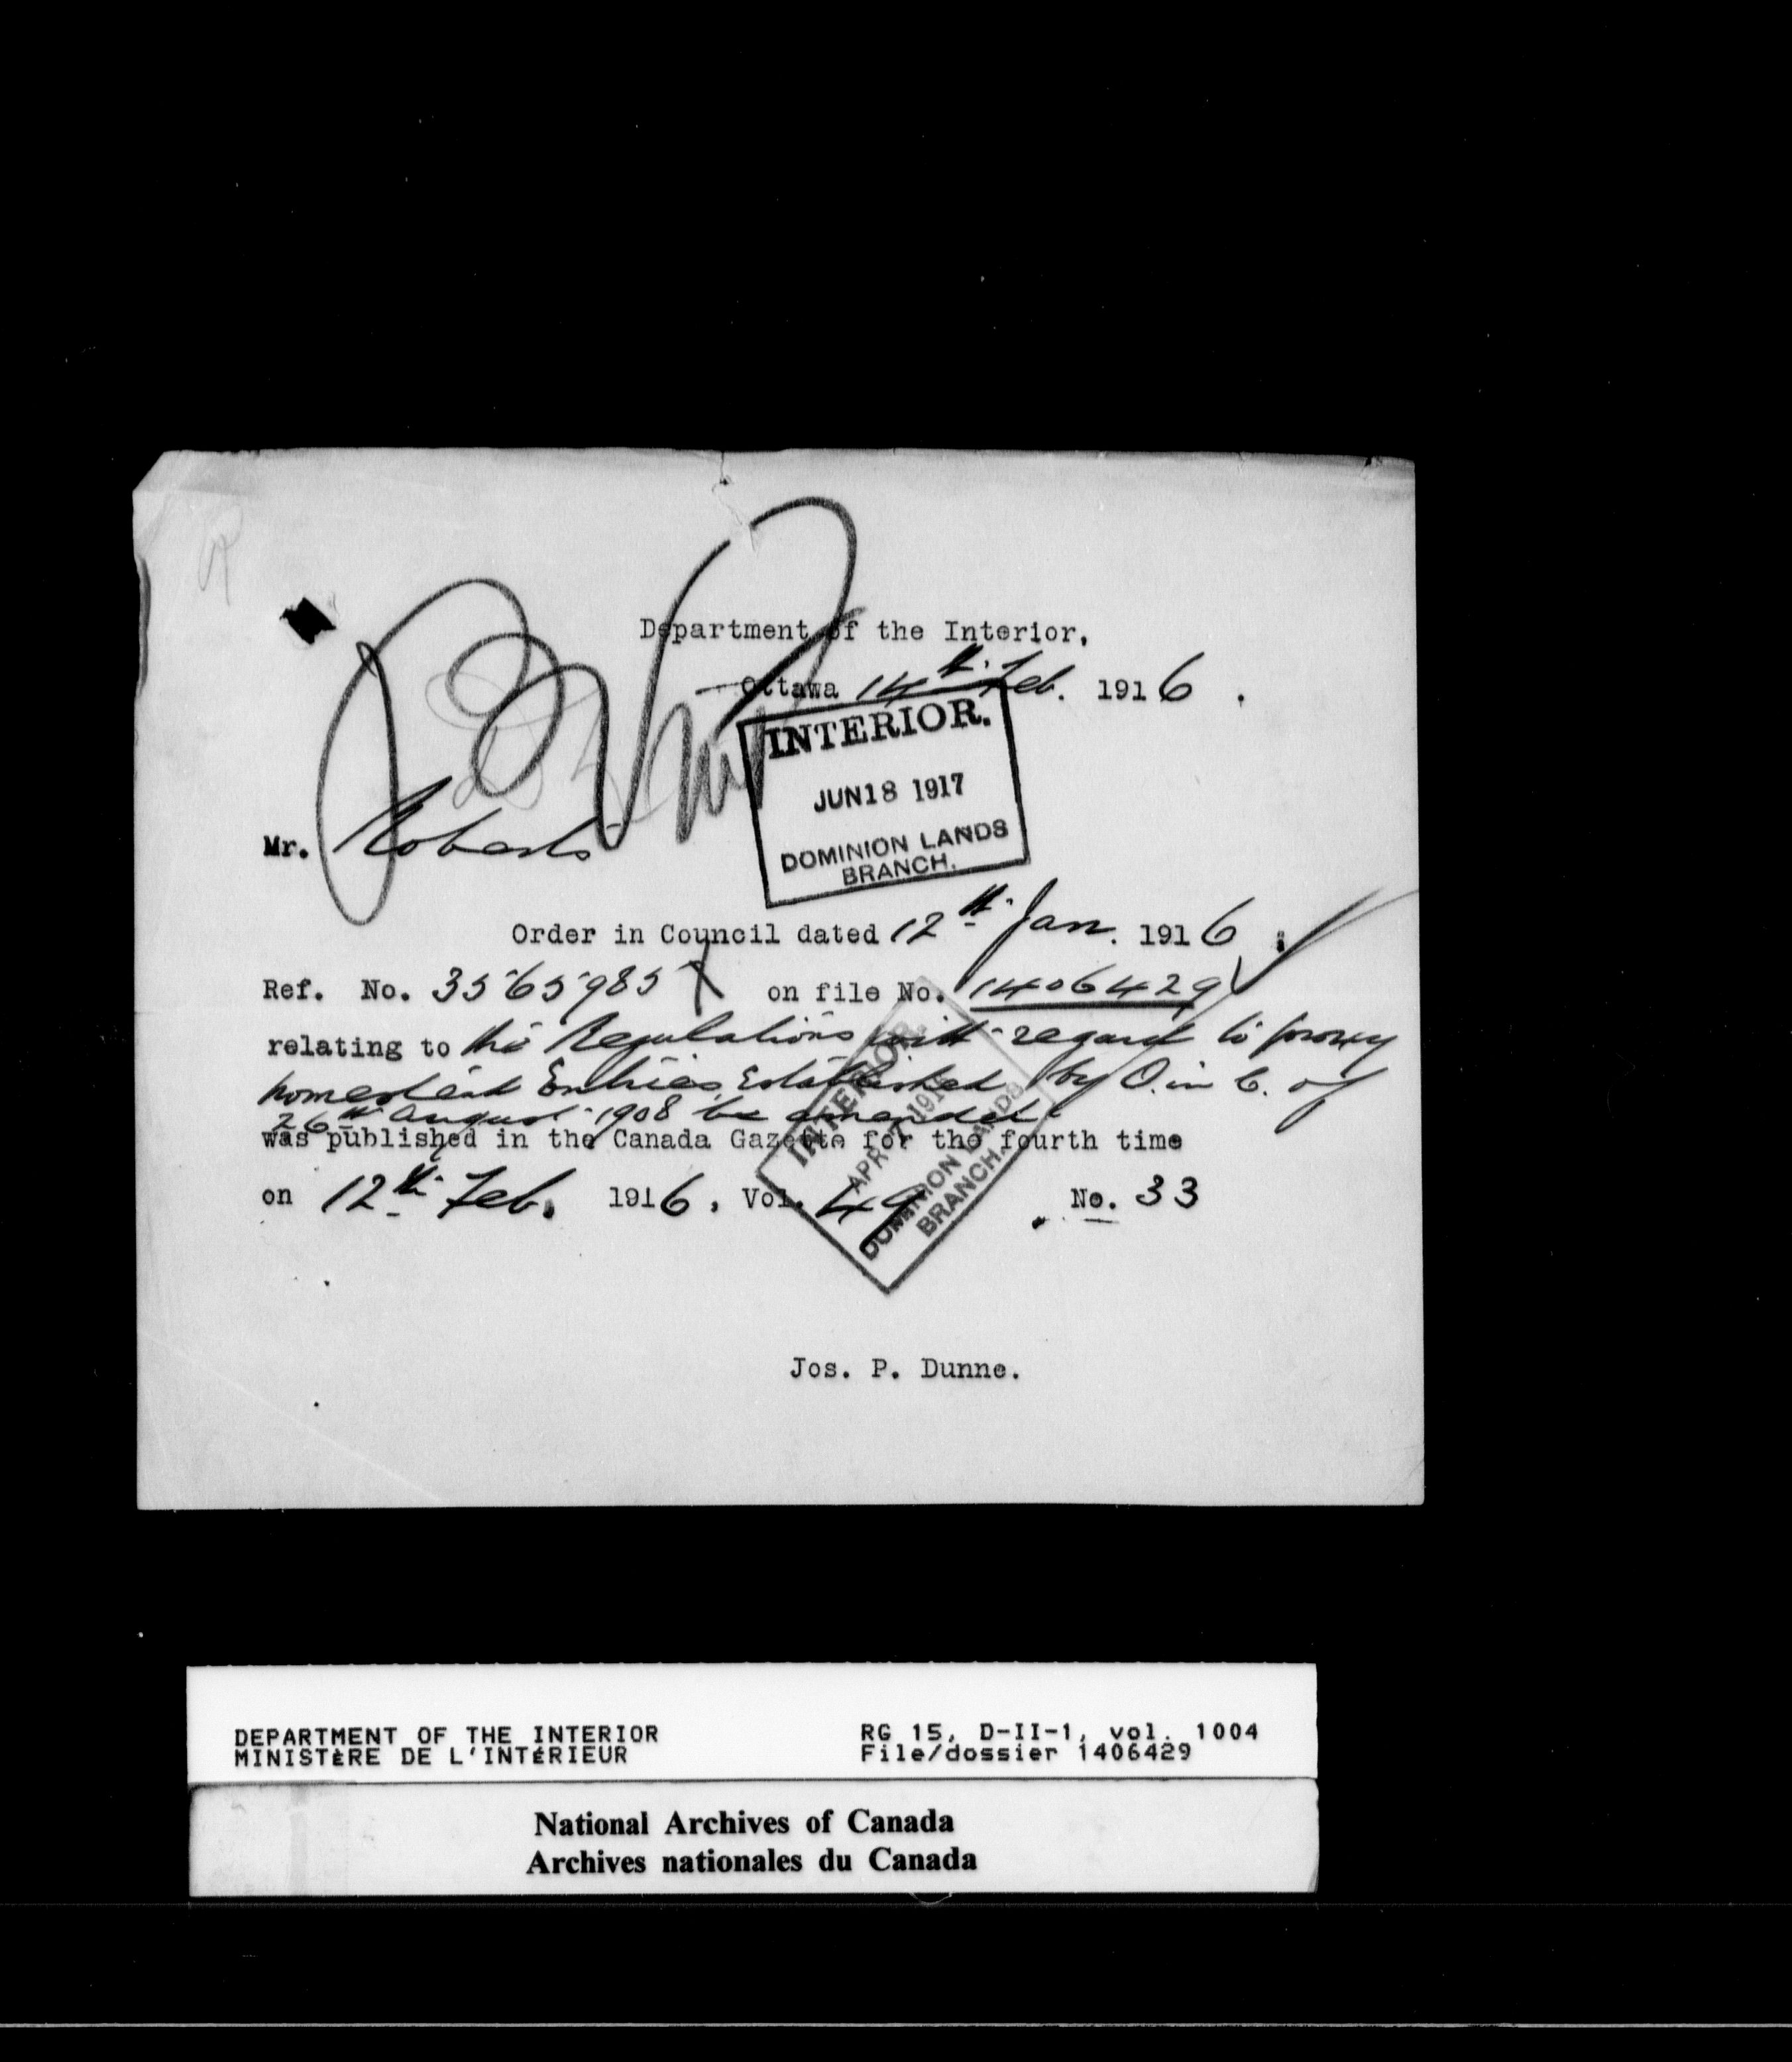 Department of the Interior,
Ottawa 14th. Feb. 1916.
INTERIOR.
JUN 18 1917
DOMINION LANDS
BRANCH.
Mr. Roberts
Order in Council dated 12th. Jan. 1916;
Ref. No. 3565985 X on file No. 1406429
relating to the Regulations with regard to proxy
homestead Entries, Established by O. in C. of
26th August 1908 be amended
was published in the Canada Gazette for the fourth time
on 12th. Feb. 1916, Vol. 49 No. 33
INTERIOR.
APR 7
DOMINION LANDS
BRANCH.
Jos. P. Dunne.
DEPARTMENT OF THE INTERIOR RG 15, D-II-1, vol. 1004
MINISTÈRE DE L'INTÉRIEUR File/dossier 1406429
National Archives of Canada
Archives nationales du Canada